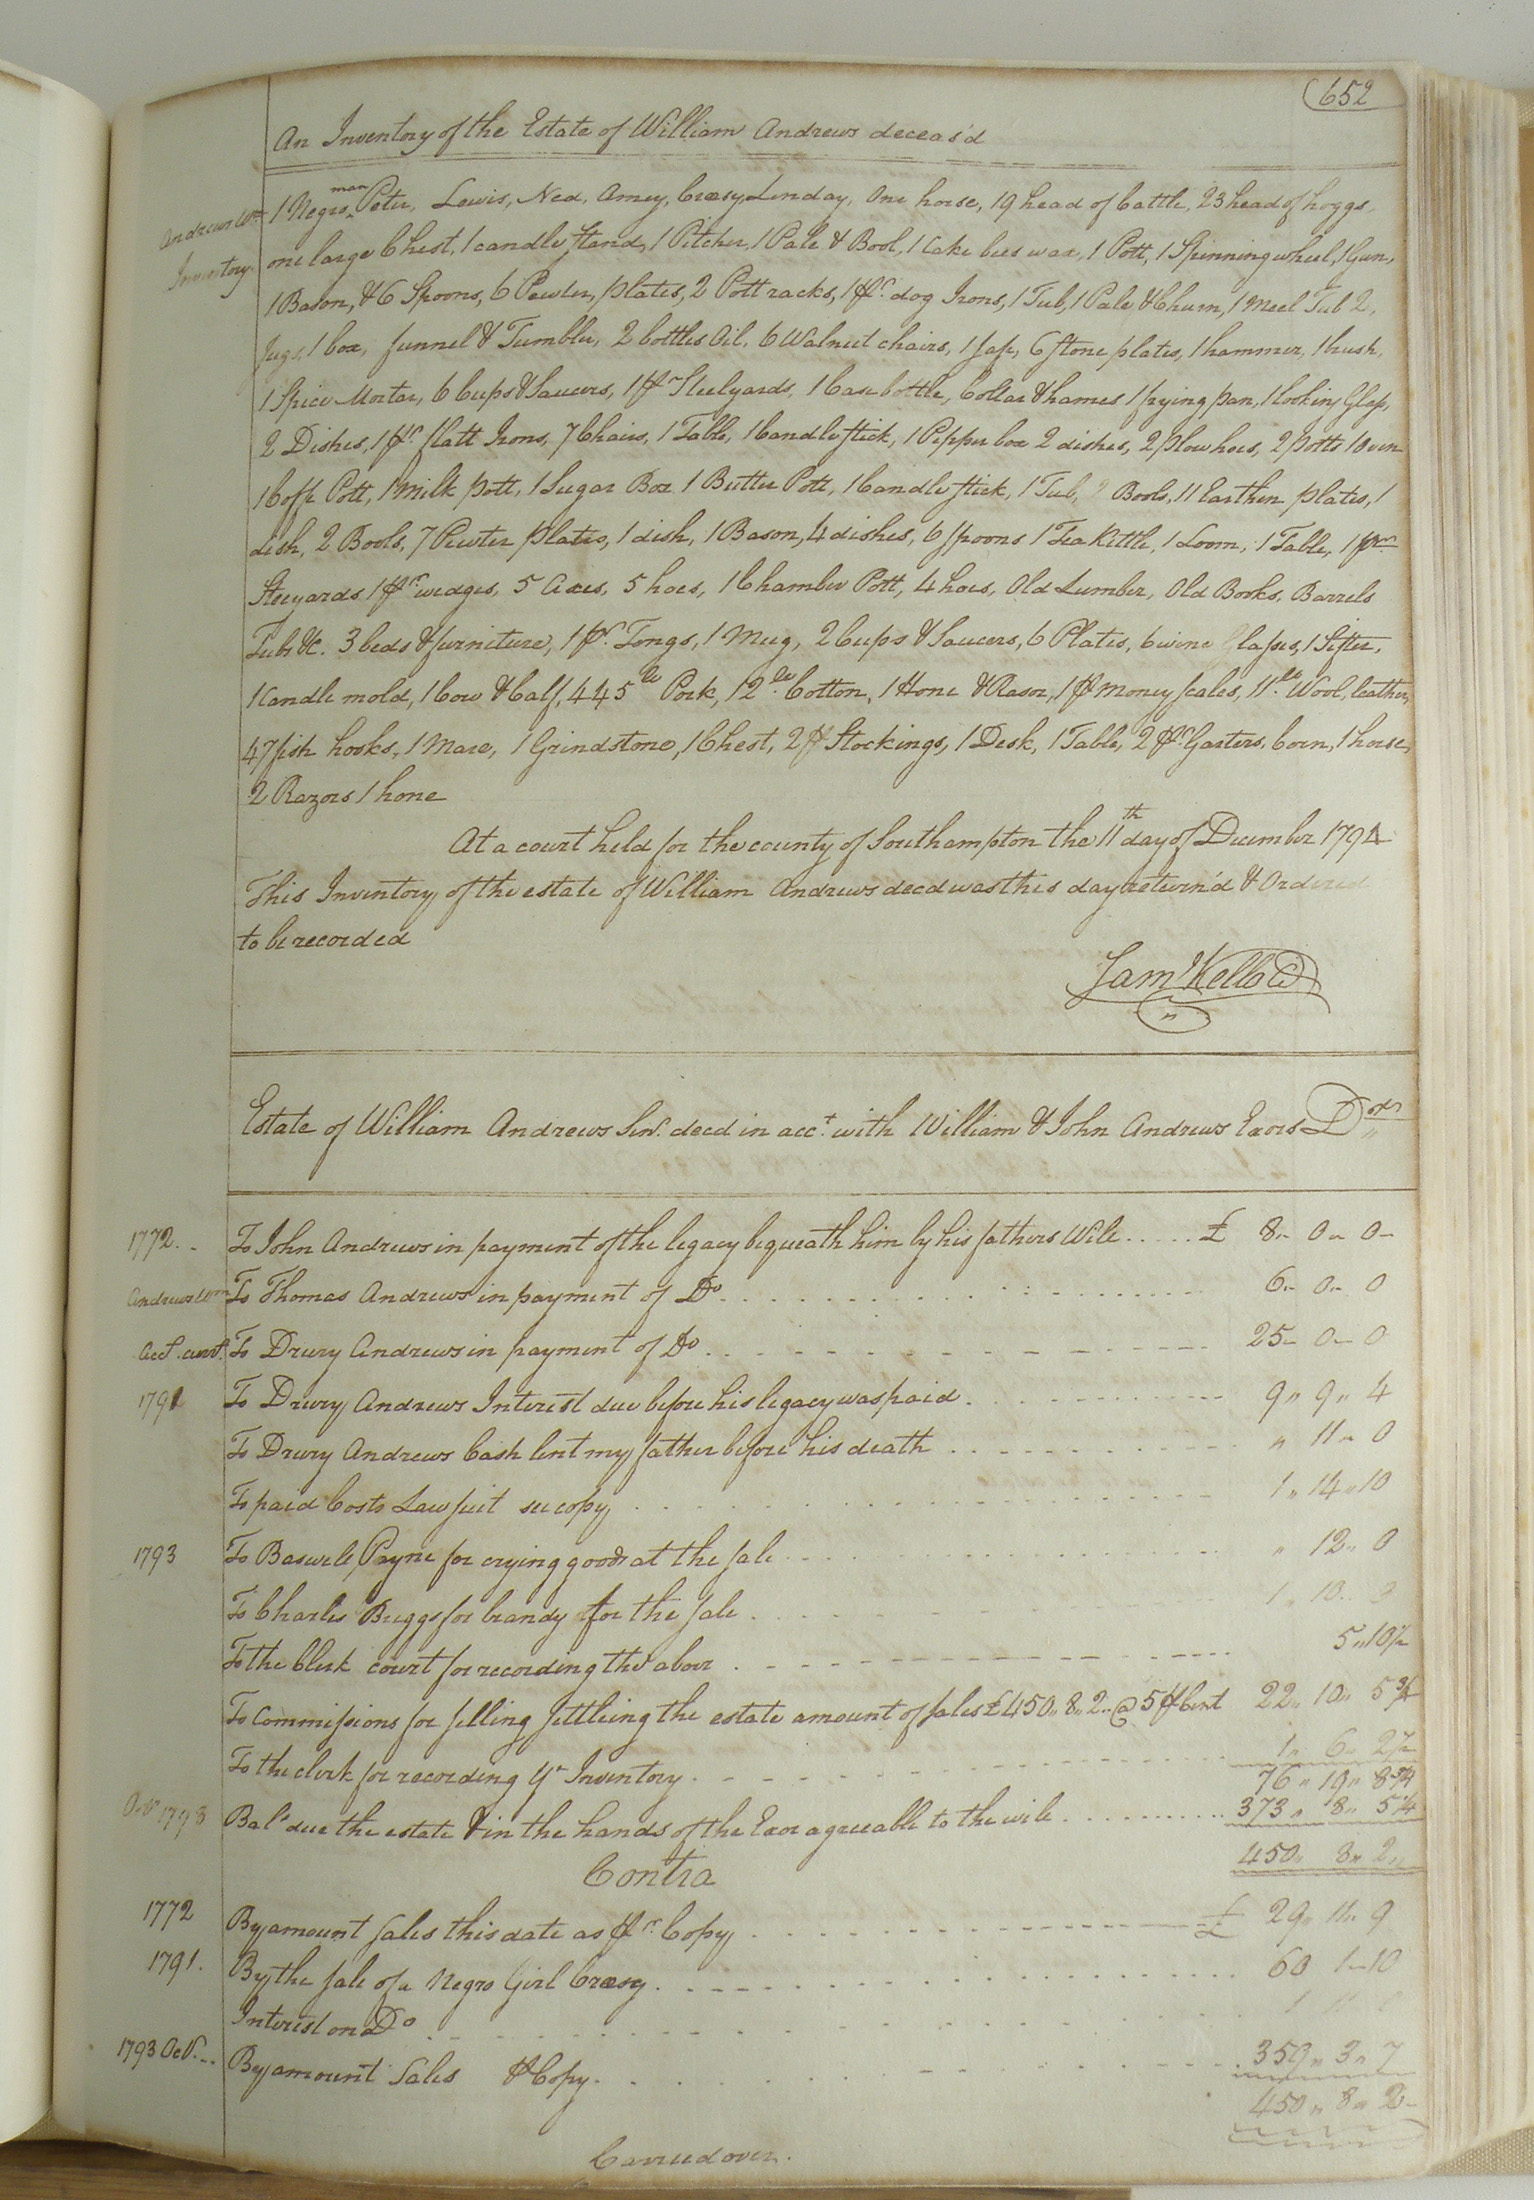 652
An Inventory of the Estate of William Andrews deceas'd
Andrews Wm
Inventory.
1 Negro man Peter, Lewis, Ned, Amey, Creasy, Linday, One horse, 19 head of Cattle, 23 head of hoggs,
one large Chest, 1 candle Stand, 1 Pitcher, 1 Pale & Bool, 1 Cake bees wax, 1 Pott, 1 Spinning wheel, 1 Gun,
1 Bason, & 6 Spoons, 6 Pewter plates, 2 Pott racks, 1 pr. dog Irons, 1 Tub, 1 Pale & Churn, 1 Meel Tub 2,
Jugs, 1 box, funnel & Tumbler, 2 bottles Oil, 6 Walnut chairs, 1 Jap, 6 Stone plates, 1 hammer, 1 brush,
1 Spice Mortar, 6 Cups & Saucers, 1 pr Steelyards, 1 Case bottle, Collar & hames 1 frying pan, 1 looking Glass,
2 Dishes, 1 pr flatt Irons, 7 Chairs, 1 Table, 1 Candlestick, 1 Pepper box 2 dishes, 2 plow hoes, 2 potts 1 Oven
1 Coffe Pott, 1 Milk pott, 1 Sugar Box 1 Butter Pott, 1 Candlestick, 1 Tub, 2 Bools, 11 Earthen plates, 1
dish, 2 Bools, 7 Pewter plates, 1 dish, 1 Bason, 4 dishes, 6 spoons 1 Tea Kettle, 1 Loom, 1 Table, 1 pr
Steeyards 1 pr wedges, 5 Axes, 5 hoes, 1 Chamber Pott, 4 hoes, Old Lumber, Old Books, Barrels
Tubs &c. 3 beds & furniture, 1 pr. Tongs, 1 Mug, 2 Cups & Saucers, 6 Plates, 6 wine Glasses, 1 Sifter,
1 Candle mold, 1 Cow & Calf, 445 lb Pork, 12 lb Cotton, 1 Hone & Rasor, 1 pr Money scales, 11 lb Wool, leather,
47 fish hooks, 1 Mare, 1 Grindstone, 1 Chest, 2 pr Stockings, 1 Desk, 1 Table, 2 pr. Garters, Corn, 1 horse,
2 Razors 1 hone
At a court held for the county of Southampton the 11th day of December 1794
This Inventory of the estate of William Andrews decd was this day return'd & Ordered
to be recorded
Saml Kello Cl
Estate of William Andrews Senr. decd in acct. with William & John Andrews Exors Dr
1772. To John Andrews in payment of the legacy bequeath him by his fathers Will ..... £ 8 " 0 " 0
Andrews Wm To Thomas Andrews in payment of Do 6 " 0 " 0
Acct. curnt. To Drury Andrews in payment of Do 25 " 0 " 0
1791 To Drury Andrews Interest due before his legacy was paid 9 " 9 " 4
To Drury Andrews Cash lent my father before his death " 11 " 0
To paid Costs Lawsuit see copy 1 " 14 " 10
1793 To Baswell Payne for crying goods at the sale " 12 " 0
To Charles Briggs for brandy for the sale 1 " 10 " 0
To the Clerk court for recording the above 5 " 10 1/2
To Commissions for selling settleing the estate amount of sales £450 " 8 " 2 @ 5 pr Cent 22 " 10 " 5 3/4
To the clerk for recording ye Inventory 1 " 6 " 2 1/2
76 " 19 " 8 3/4
Oct 1793 Bale due the estate & in the hands of the Exor agreeable to the will 373 " 8 " 5 1/4
450 " 8 " 2
Contra
1772 By amount sales this date as pr. Copy £ 29 " 11 " 9
1791. By the sale of a Negro Girl Creasy 60 1 " 10
Interest on Do
1793 Oct. By amount Sales pr Copy 359 " 3 " 7
450 " 8 " 2
Carried over.